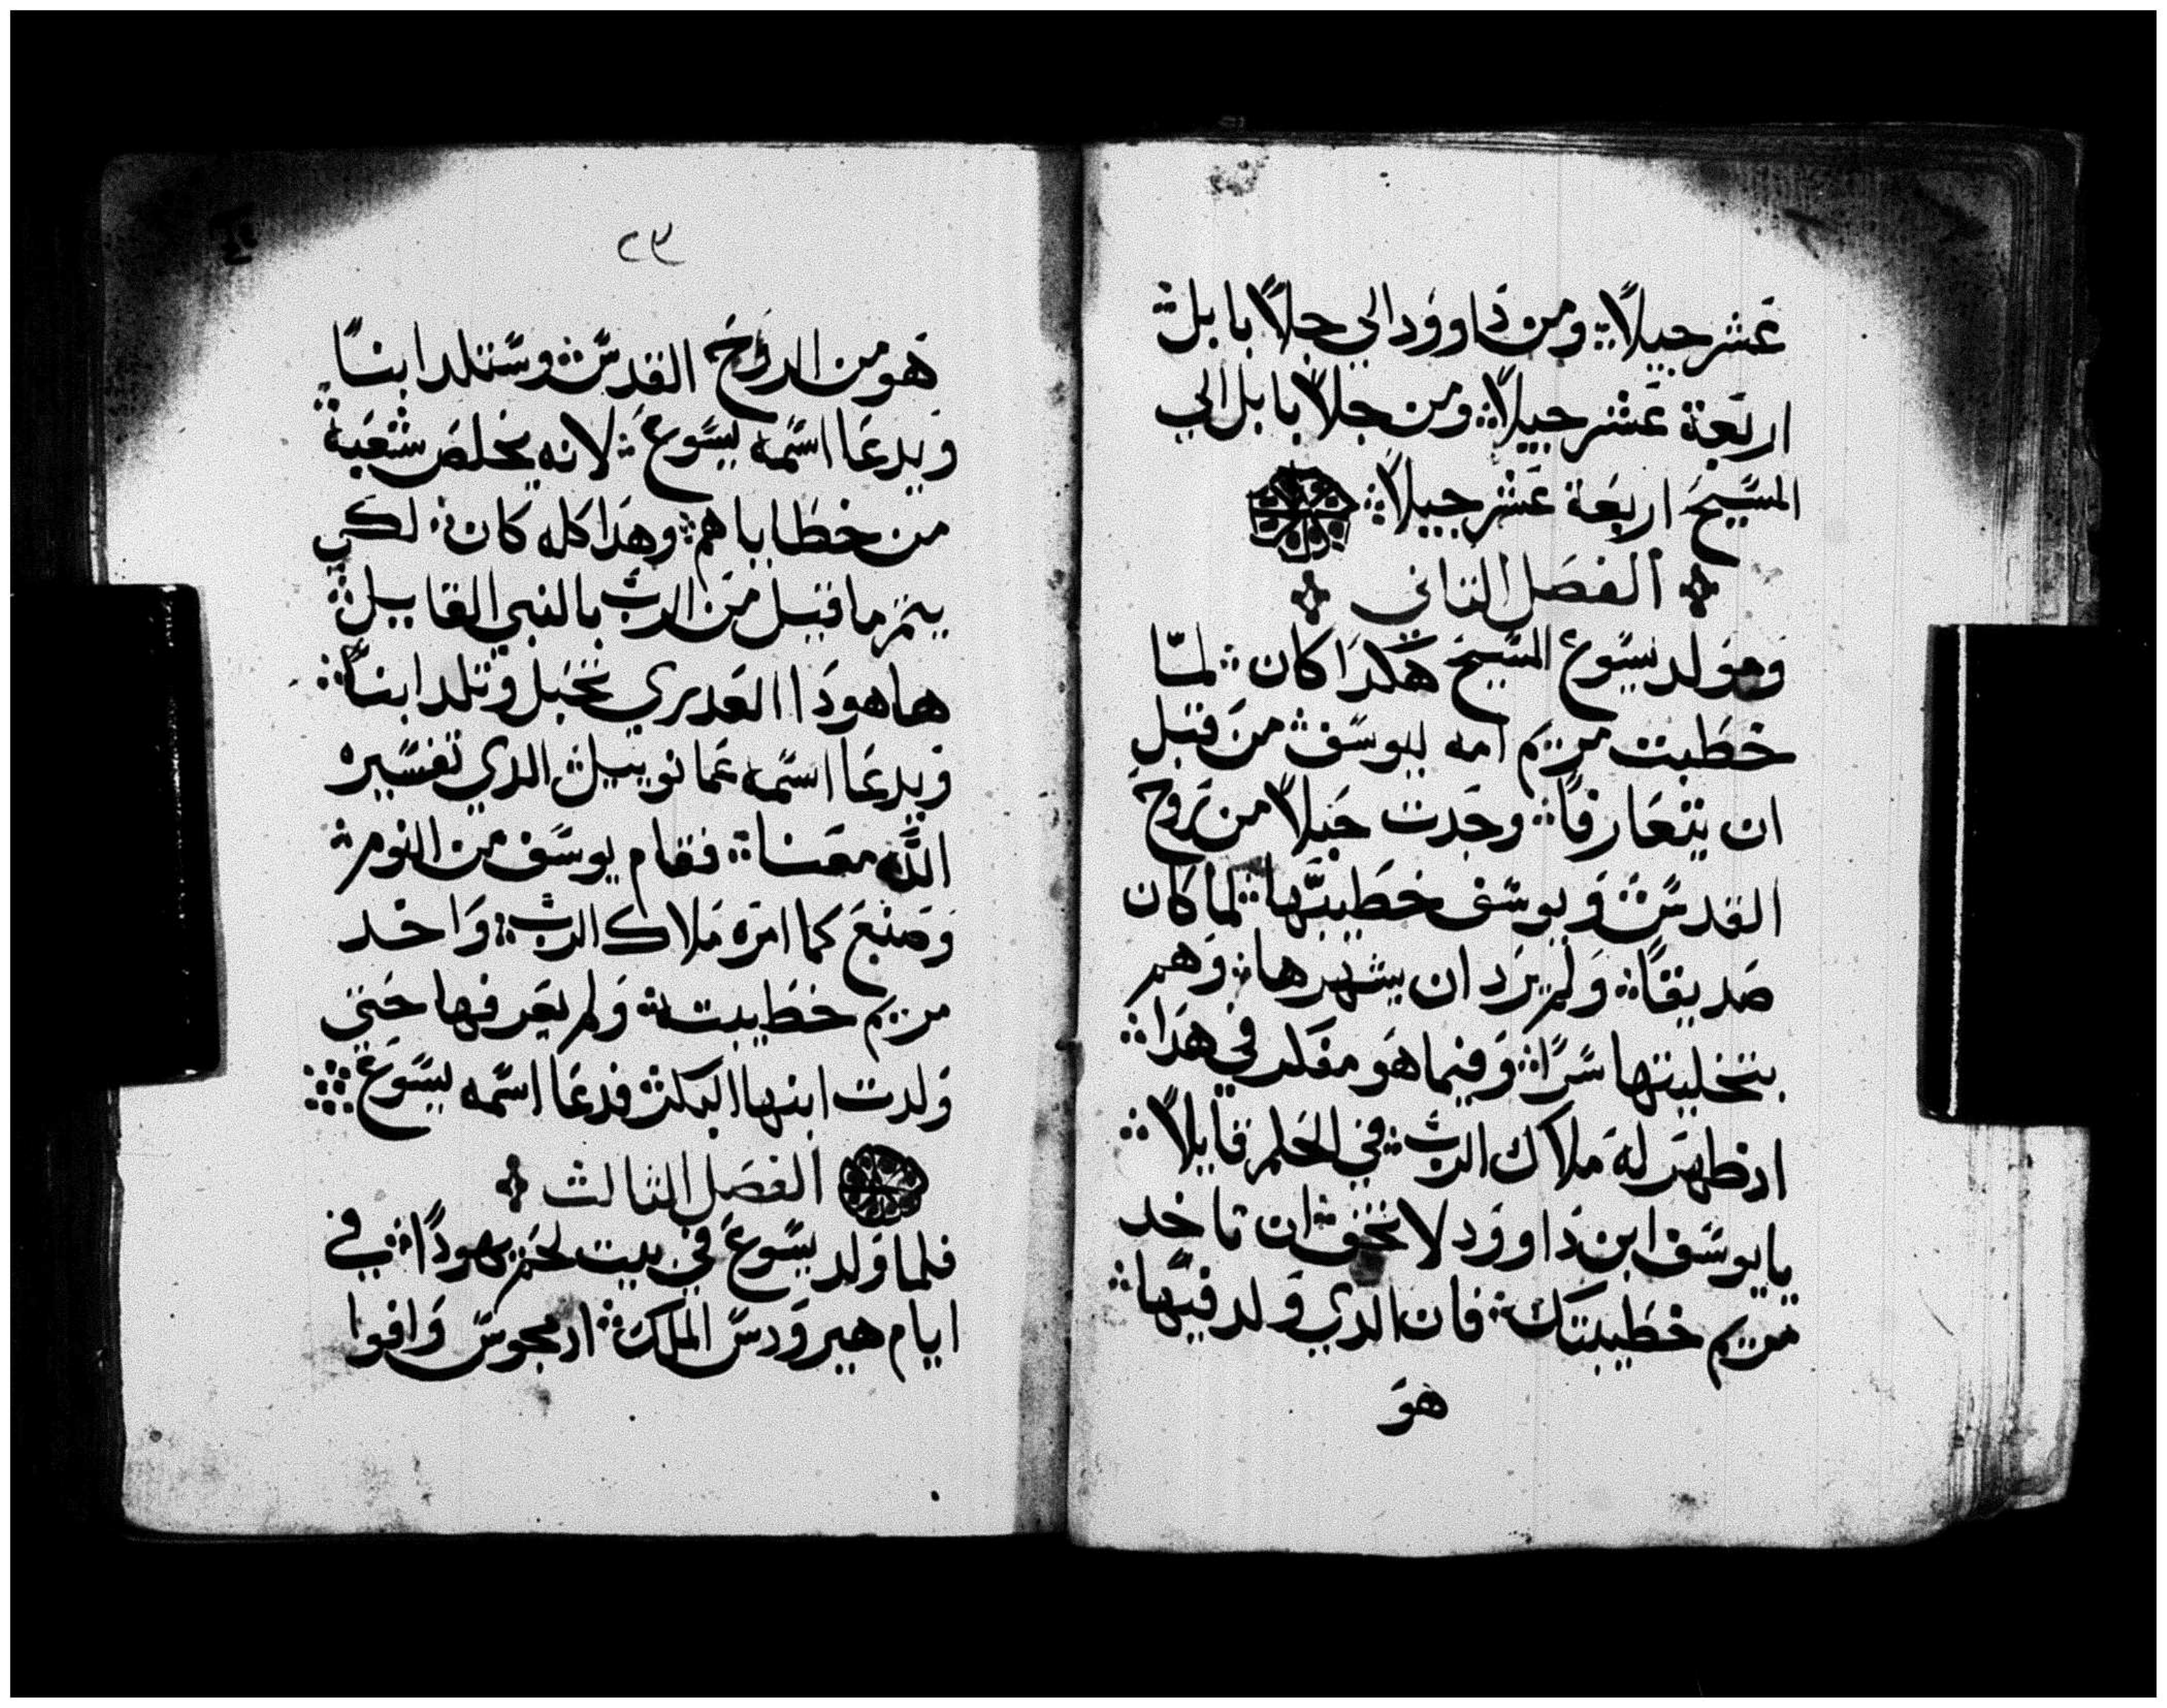 عشر جيلاً ومن داوود الي جلاً بابل
اربعة عشر جيلاً ومن جلاً بابل الي
المسيح اربعة عشر جيلاً
الفصل التاني
ومولد يسوع المسيح هكدا كان لما
خطبت مريم امه ليوسف من قبل
ان يتعارفا وجدت حبلاً من روح
القدس ويوسف خطيبها لما كان
صديقاً ولم يرد ان يشهرها وهم
بتخليتها سرًا وفيما هو مفكر في هدا
اد ظهر له ملاك الرب في الحلم قايلاً
يا يوسف ابن داوود لا تخف ان تاخد
مريم خطيبتك فان الدي ولد فيها
هو
٢٣
هو من الروح القدس وستلد ابناً
ويدعا اسمه يسوع لانه يخلص شعبه
من خطاياهم وهدا كله كان لكي
يتم ما قيل من الرب بالنبي القايل
ها هودا العدري تحبل وتلد ابناً
ويدعا اسمه عمانوييل الدي تفسيره
الله معنا فقام يوسف من النوم
وصنع كما امره ملاك الرب واخد
مريم خطيبته ولم يعرفها حتي
ولدت ابنها البكر فدعا اسمه يسوع
الفصل التالت
فلما ولد يسوع في بيت لحم يهودا في
ايام هيرودس الملك اد مجوس وافوا